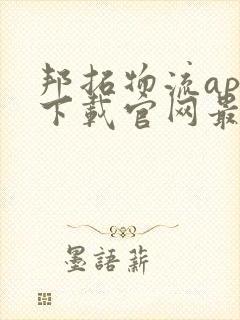 邦拓物流ap
下载官网最
墨語薪